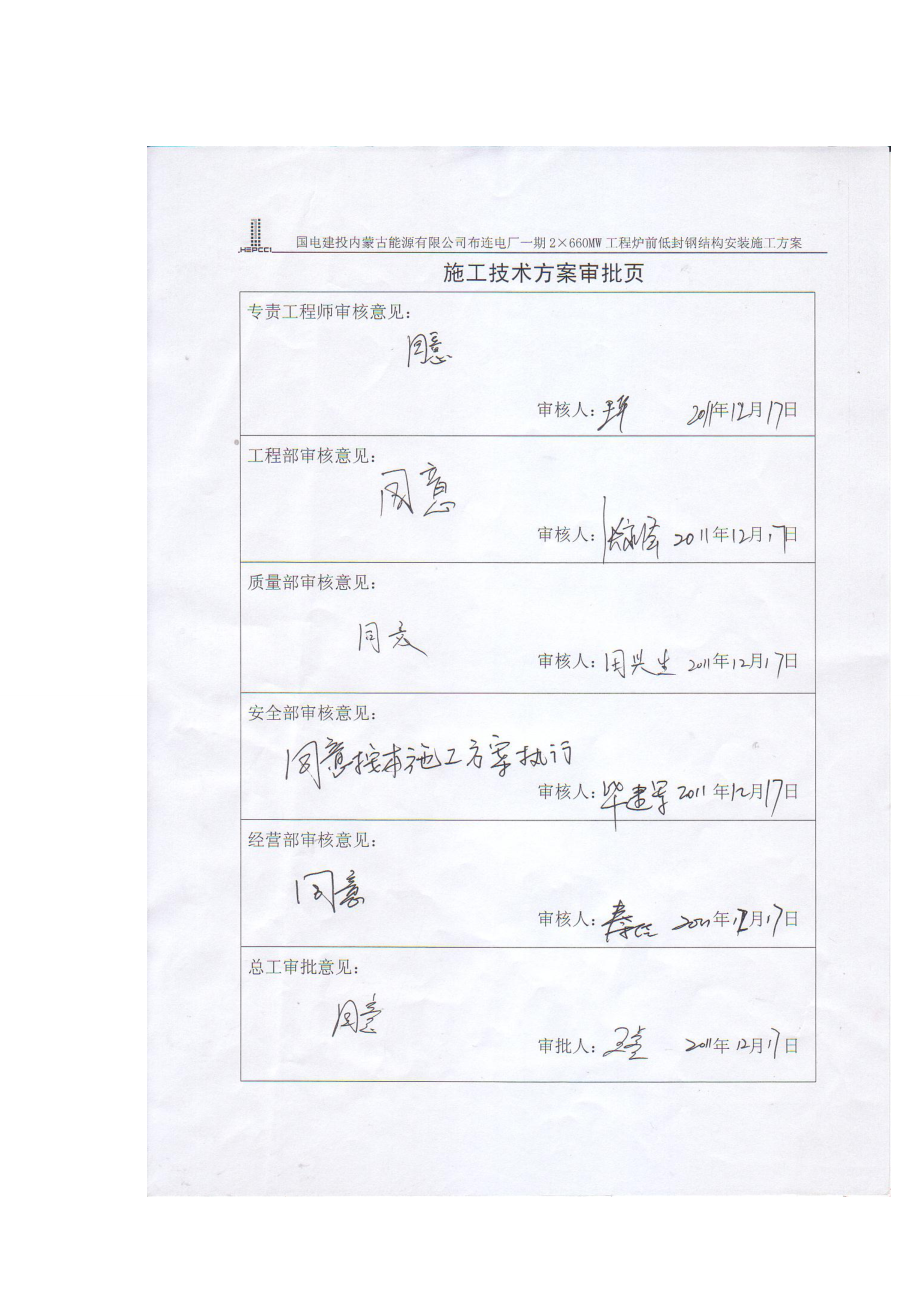 HEPCCI
国电建投内蒙古能源有限公司布连电厂一期2×660MW工程炉前低封钢结构安装施工方案
施工技术方案审批页
专责工程师审核意见：
同意
审核人： 2011年12月17日
工程部审核意见：
同意
审核人： 2011年12月17日
质量部审核意见：
同意
审核人：田兴生 2011年12月17日
安全部审核意见：
同意按本施工方案执行
审核人：毕建军 2011年12月17日
经营部审核意见：
同意
审核人： 2011年12月17日
总工审批意见：
同意
审批人： 2011年12月17日